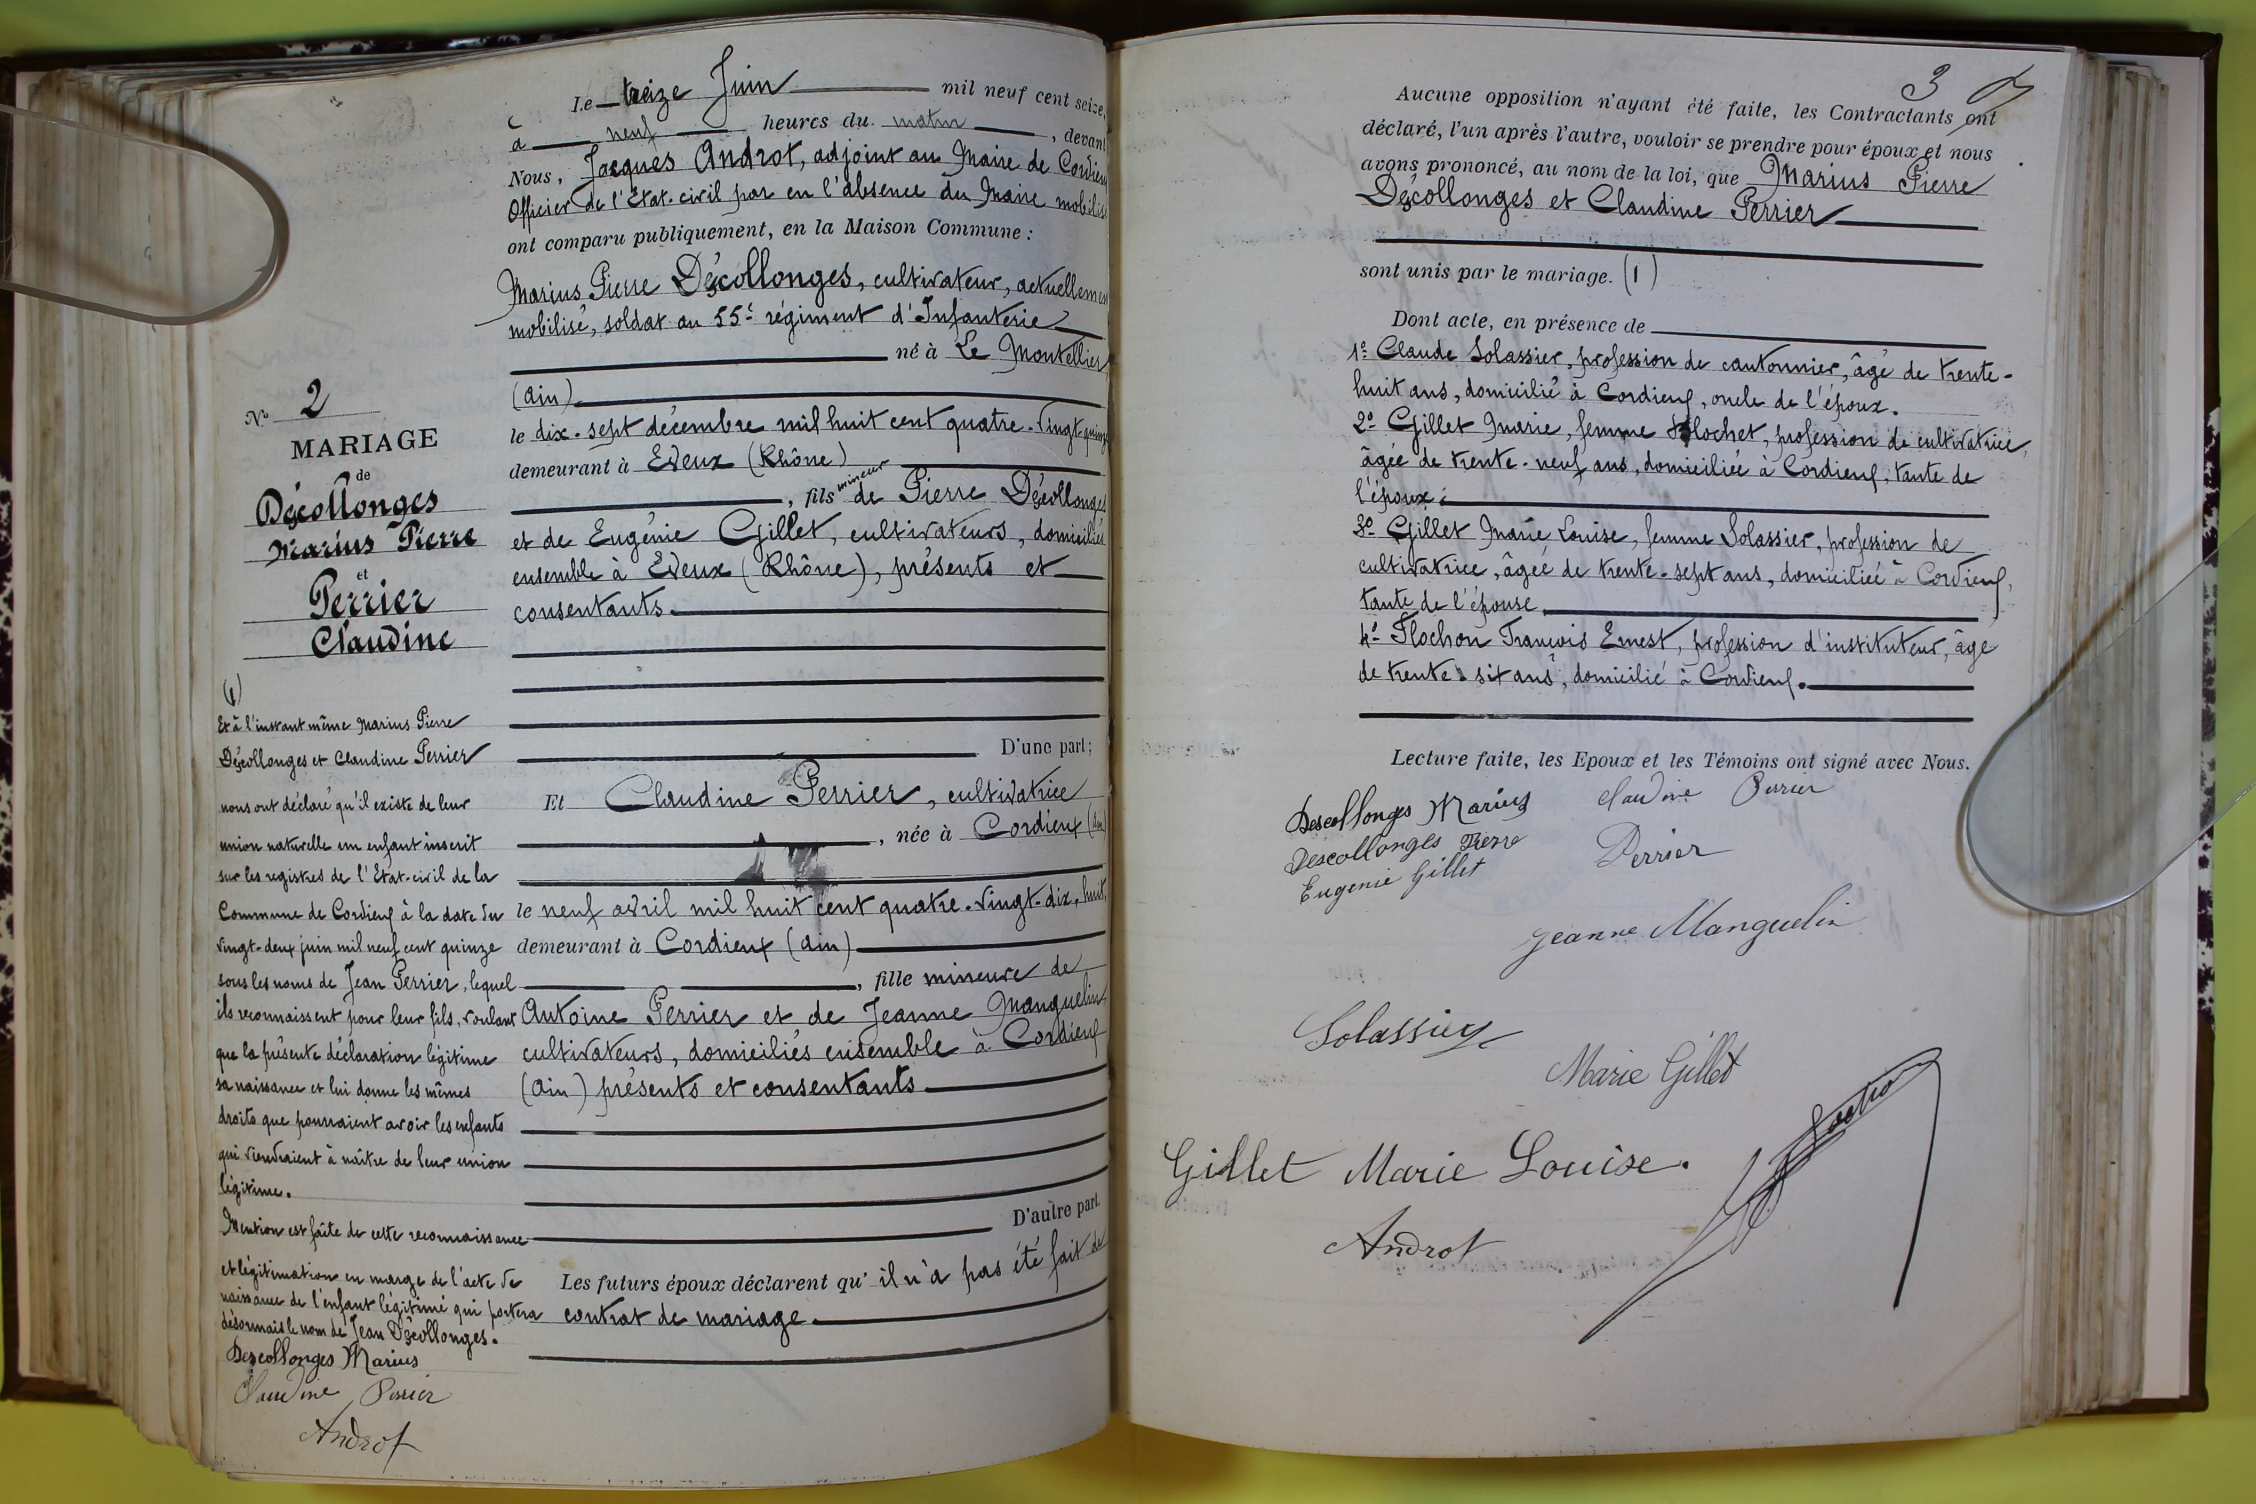 Le treize Juin mil neuf cent seize,
à neuf heures du matin, devant
Nous, Jacques Androt, adjoint au Maire de Cordieux
Officier de l'Etat-civil par en l'absence du Maire mobilisé
ont comparu publiquement, en la Maison Commune :
Marius Pierre Déscollonges, cultivateur, actuellement
mobilisé, soldat au 55e régiment d'Infanterie
né à Le Montellier
(Ain)
le dix-sept décembre mil huit cent quatre-vingt quinze
demeurant à Eveux (Rhône)
, fils mineur de Pierre Déscollonges
et de Eugénie Gillet, cultivateurs, domiciliés
ensemble à Eveux (Rhône), présents et
consentants.
D'une part;
Et Claudine Perrier, cultivatrice
, née à Cordieux (Ain)
le neuf avril mil huit cent quatre-vingt-dix-huit,
demeurant à Cordieux (Ain)
, fille mineure de
Antoine Perrier et de Jeanne Manguelin
cultivateurs, domiciliés ensemble à Cordieux
(Ain) présents et consentants
D'autre part.
Les futurs époux déclarent qu'il n'a pas été fait de
contrat de mariage.
No 2
MARIAGE
de
Déscollonges
Marius Pierre
et
Perrier
Claudine
(1)
Et à l'instant même Marius Pierre
Déscollonges et Claudine Perrier
nous ont déclaré qu'il existe de leur
union naturelle un enfant inscrit
sur les registres de l'Etat-civil de la
Commune de Cordieux à la date du
vingt-deux juin mil neuf cent quinze
sous les noms de Jean Perrier, lequel
ils reconnaissent pour leur fils, voulant
que la présente déclaration légitime
sa naissance et lui donne les mêmes
droits que pourraient avoir les enfants
qui viendraient à naître de leur union
légitime.
Mention est faite de cette reconnaissance
et légitimation en marge de l'acte de
naissance de l'enfant légitimé qui portera
désormais le nom de Jean Déscollonges.
Descollonges Marius
Claudine Perrier
Androt
3
Aucune opposition n'ayant été faite, les Contractants ont
déclaré, l'un après l'autre, vouloir se prendre pour époux et nous
avons prononcé, au nom de la loi, que Marius Pierre
Déscollonges et Claudine Perrier
sont unis par le mariage. (1)
Dont acte, en présence de
1o Claude Solassier, profession de cantonnier, âgé de trente-
huit ans, domicilié à Cordieux, oncle de l'époux.
2o Gillet Marie, femme Flochet, profession de cultivatrice,
âgée de trente-neuf ans, domiciliée à Cordieux, tante de
l'époux.
3o Gillet Marie Louise, femme Solassier, profession de
cultivatrice, âgée de trente-sept ans, domiciliée à Cordieux,
tante de l'épouse.
4o Flochon François Ernest, profession d'instituteur, âge
de trente-six ans, domicilié à Cordieux.
Lecture faite, les Epoux et les Témoins ont signé avec Nous.
Descollonges Marius Claudine Perrier
Descollonges Pierre Perrier
Eugenie Gillet
Jeanne Manguelin
Solassier
Marie Gillet
Gillet Marie Louise.
Androt